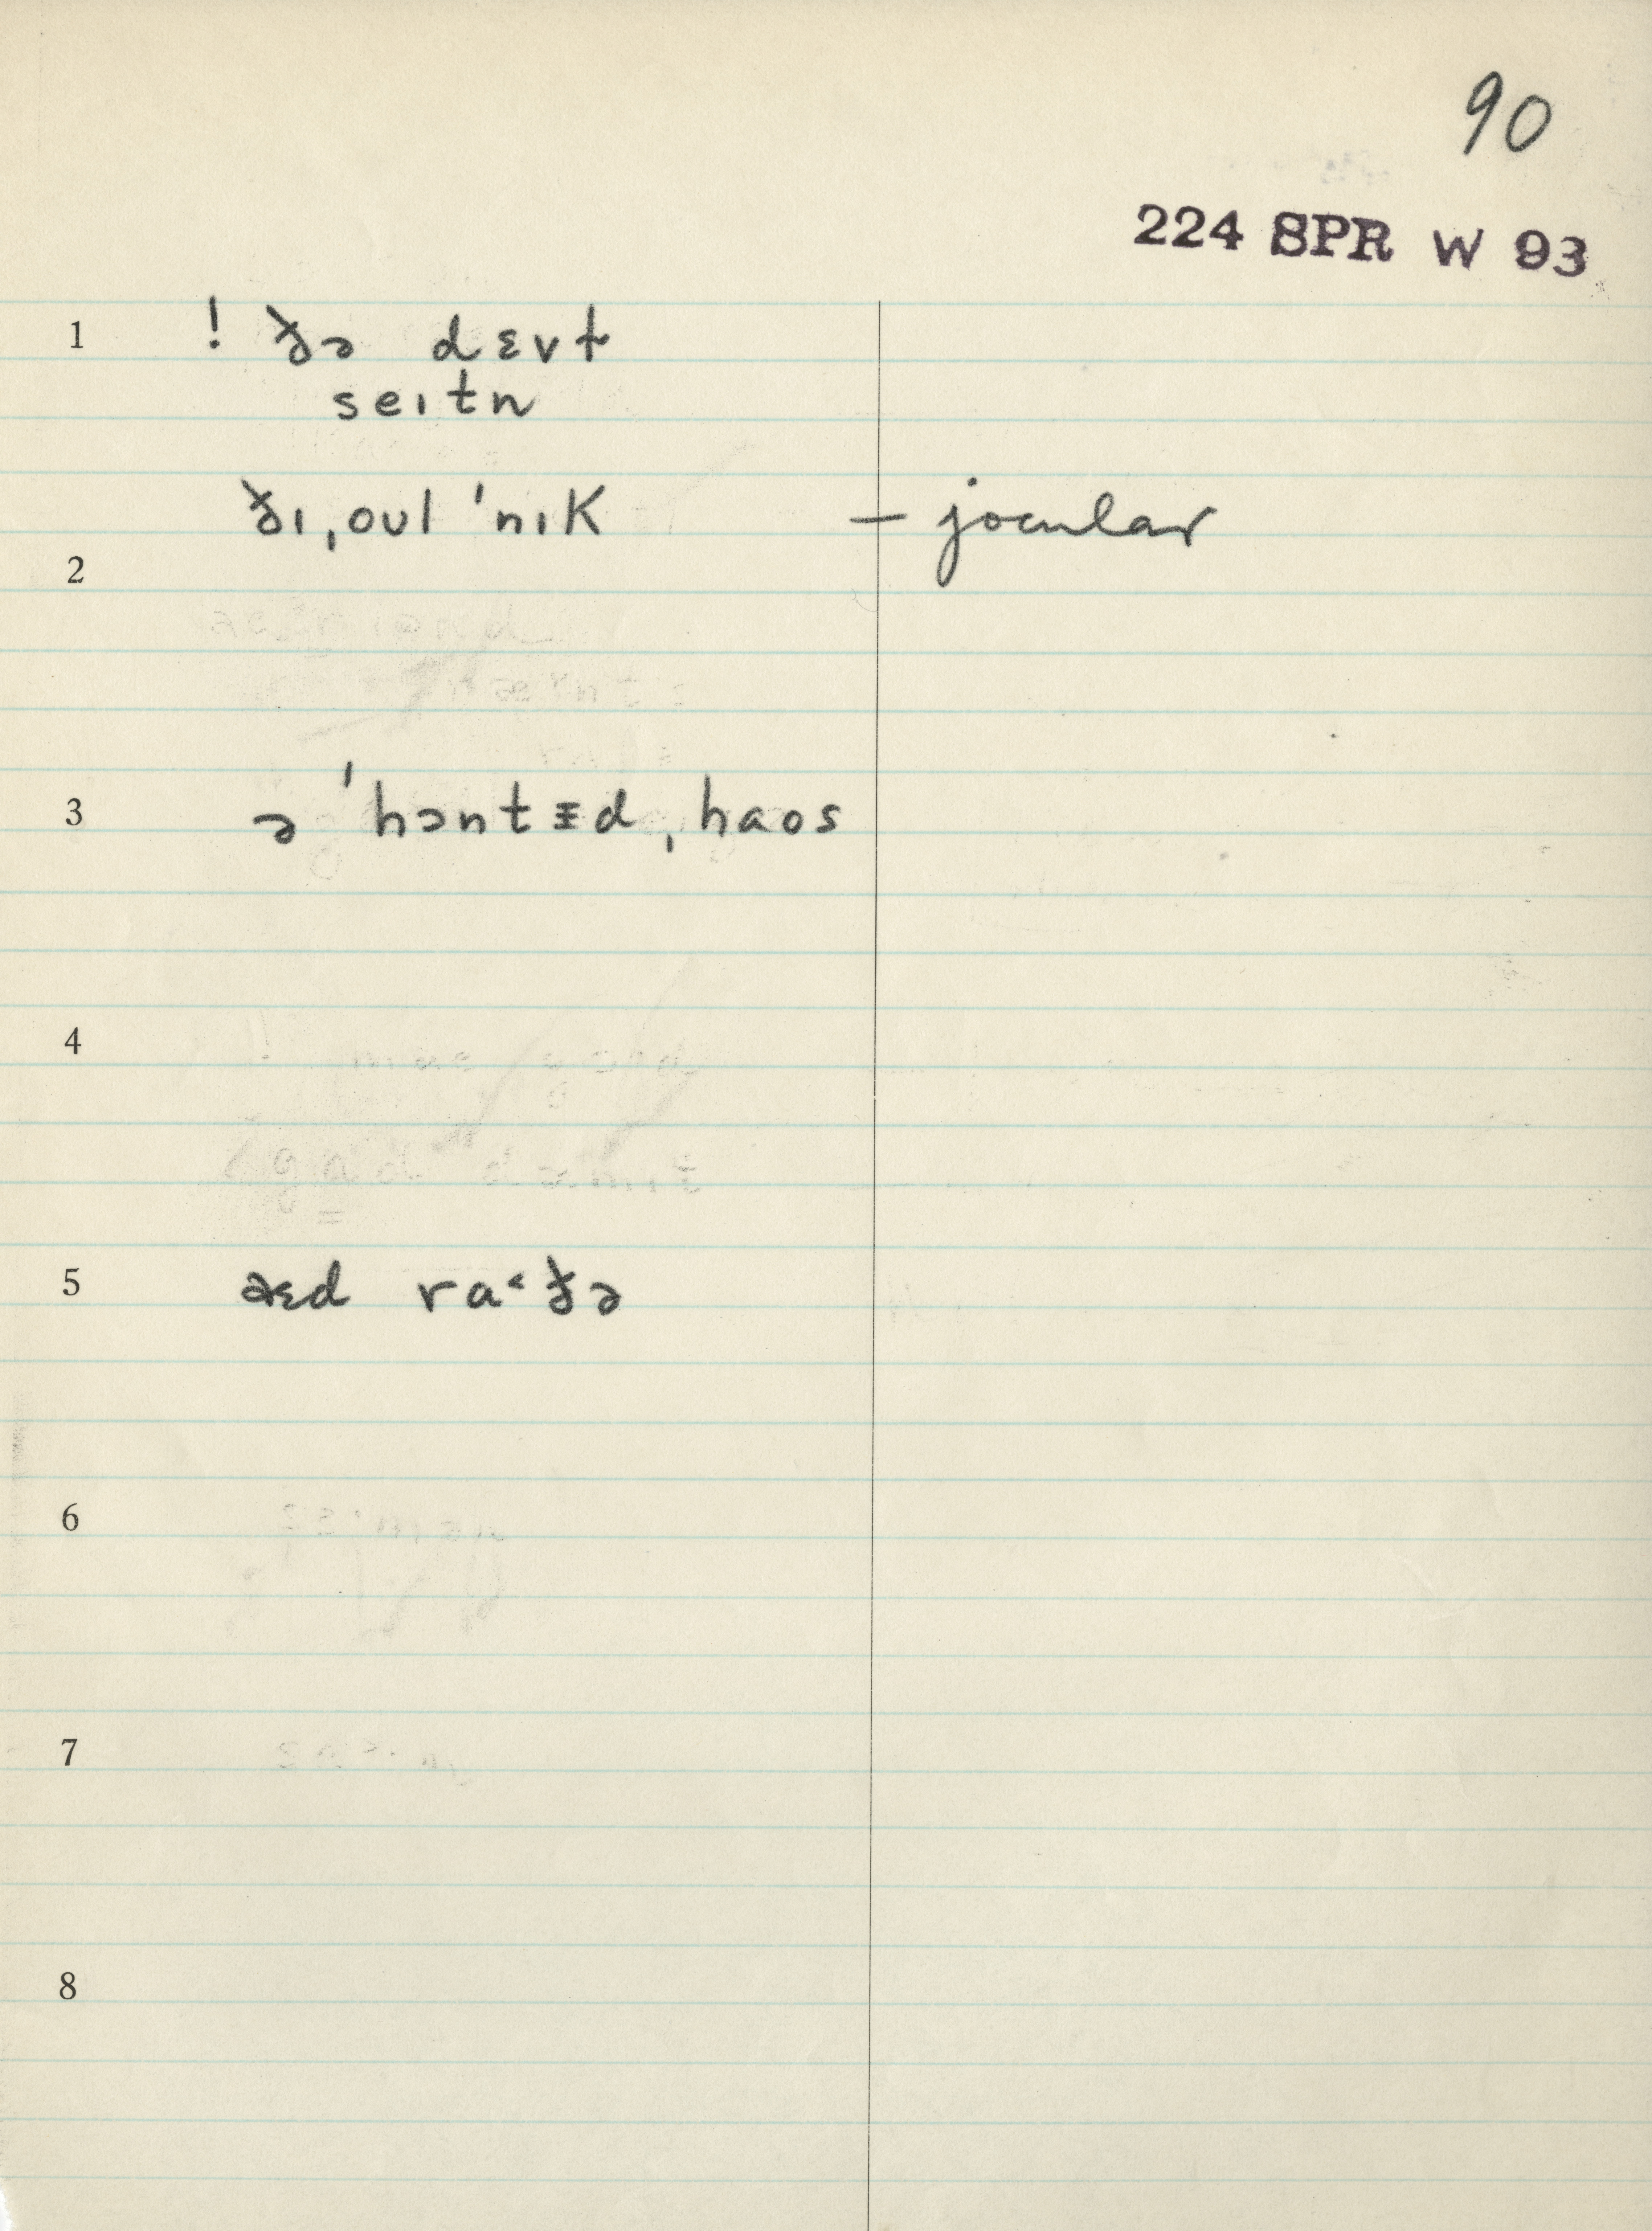 90
224 SPR W 93
1 ! ðə dɛvɫ
seɪtn
ðɪ ˌoʊl ˈnɪk – jocular
2
3 ə ˈhɔntɪ̵d ˌhaos
4
5 əɛd ra˂ðə
6
7
8